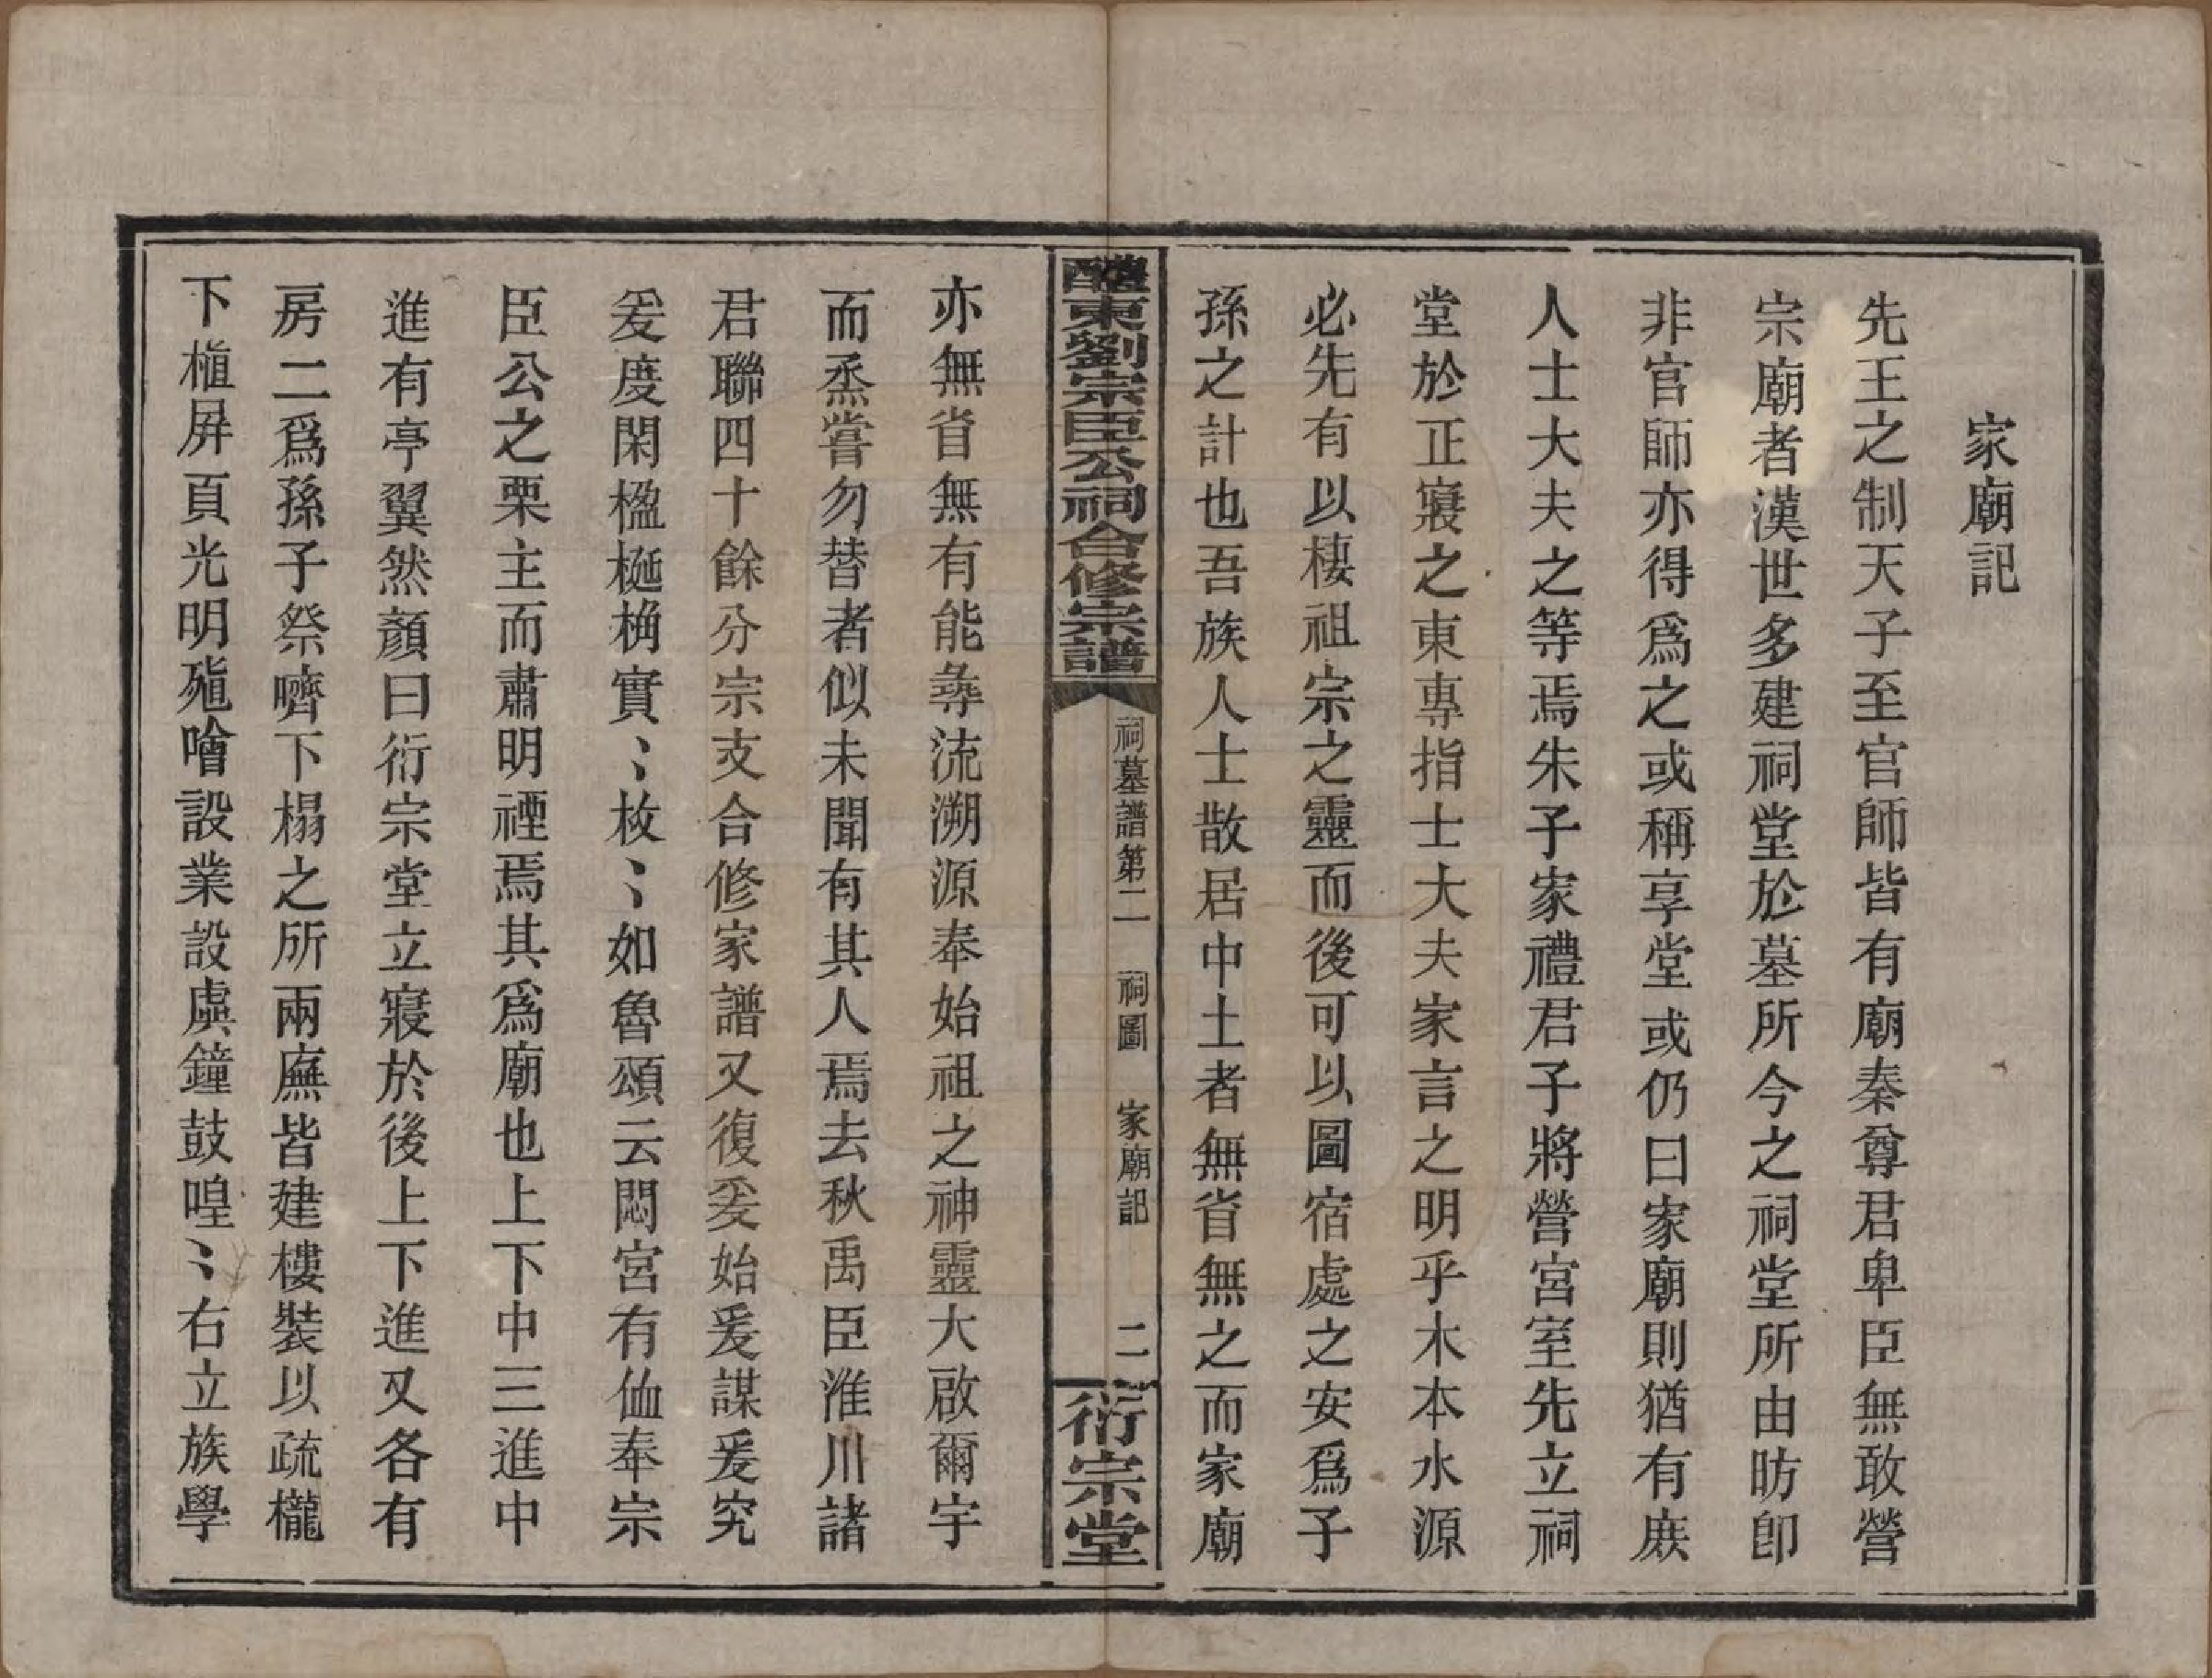 家廟記
先王之制天子至官師皆有廟秦尊君卑臣無敢營
宗廟者漢世多建祠堂於墓所今之祠堂所由昉卽
非官師亦得爲之或稱享堂或仍曰家廟則猶有庶
人士大夫之等焉朱子家禮君子將營宮室先立祠
堂於正寢之東專指士大夫家言之明乎木本水源
必先有以棲祖宗之靈而後可以圖宿處之安爲子
孫之計也吾族人士散居中土者無省無之而家廟
醴東劉宗臣公祠合修宗譜
祠墓譜第二 祠圖 家廟記 二
衍宗堂
亦無省無有能彝流溯源奉始祖之神靈大啟爾宇
而烝嘗勿替者似未聞有其人焉去秋禹臣淮川諸
君聯四十餘分宗支合修家譜又復爰始爰謀爰究
爰度閑楹梴桷實〻枚〻如魯頌云閟宮有侐奉宗
臣公之栗主而肅明禋焉其爲廟也上下中三進中
進有亭翼然顏曰衍宗堂立寢於後上下進又各有
房二爲孫子祭嚌下榻之所兩廡皆建樓裝以疏櫳
下植屛頁光明殖噲設業設虡鐘鼓喤〻右立族學